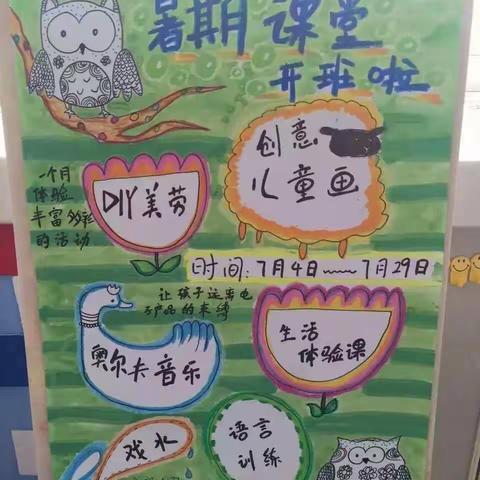 暑期课堂
开班啦
创意
儿童画
一个月
体验
丰富多彩
的活动
DIY美劳
时间:7月4日~7月29日
让孩子远离电
子产品的束缚
奥尔夫音乐
生活
体验课
戏水
语言
训练